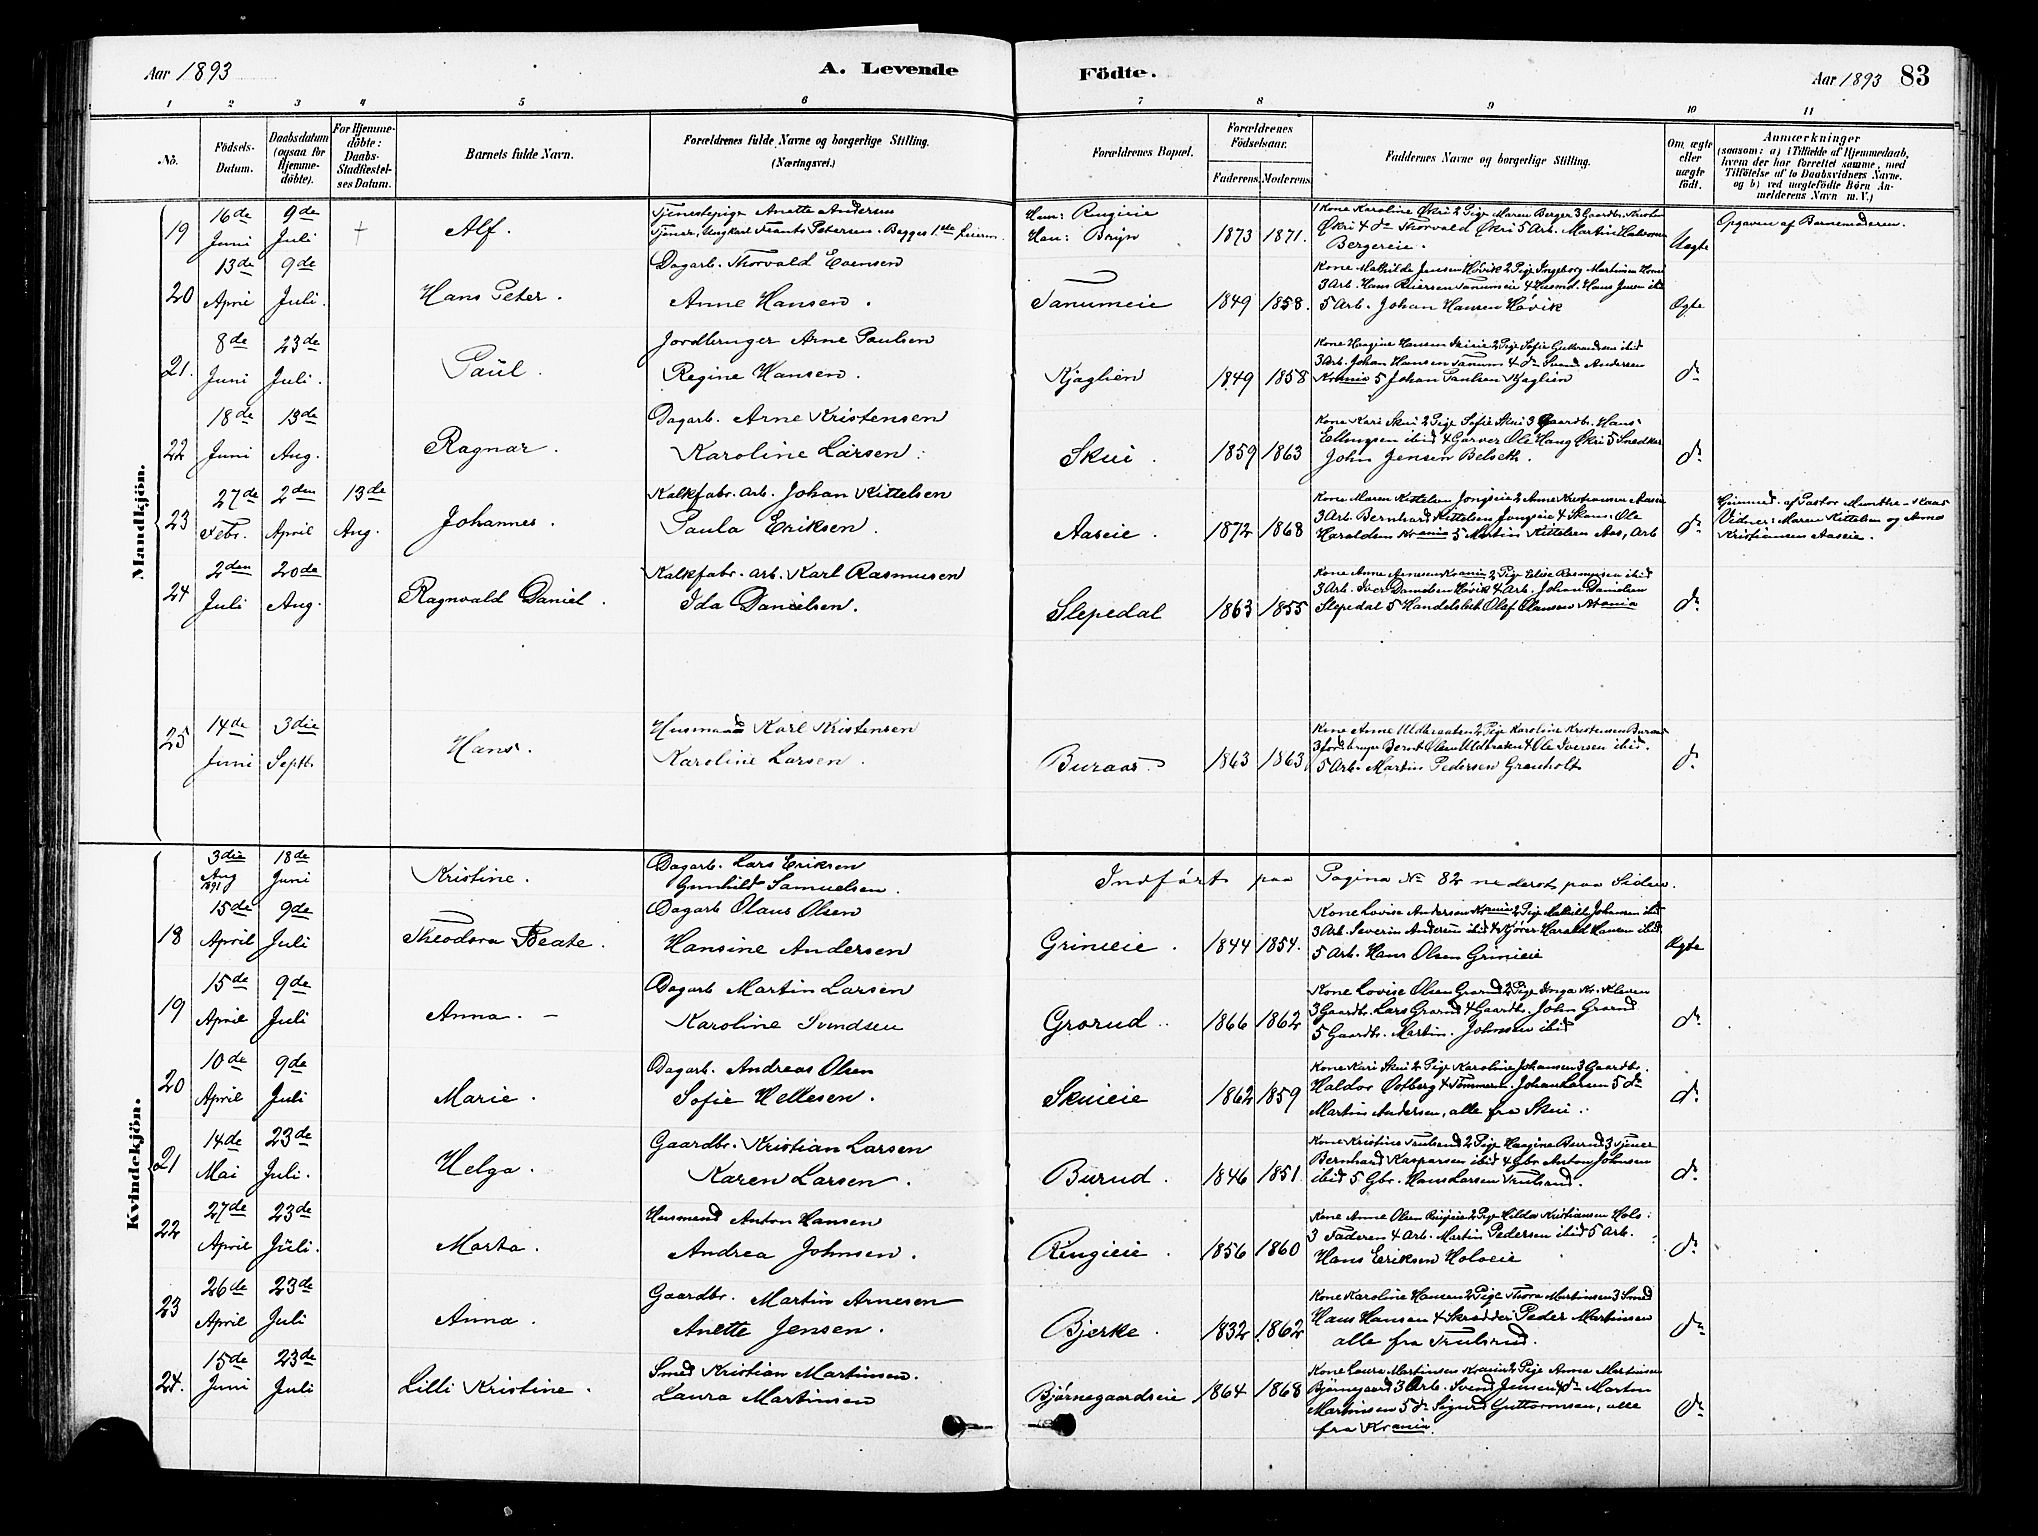 Aar 1893
A. Levende
Födte.
Aar 1893 83
1 2 3 4 5 6 7 8 9 10 11
No.
Födsels-
Datum.
Daabsdatum
(ogsaa for
Hjemme-
döbte).
For Hjemme-
döbte:
Daabs-
Stadfæstel-
ses Datum.
Barnets fulde Navn.
Forældrenes fulde Navne og borgerlige Stilling.
(Næringsvei.)
Forældrenes Bopæl.
Forældrenes
Födselsaar.
Faderens. Moderens.
Faddernes Navne og borgerlige Stilling.
Om ægte
eller
uægte
födt.
Anmærkninger
(saasom: a) i Tilfælde af Hjemmedaab,
hvem der har forrettet samme, med
Tilföielse af to Daabsvidners Navne.
og b) ved uægtefödte Börn An-
melderens Navn m. V.)
Mandkjön.
19
16de Juni
9de Juli
+
Alf.
Tjenestepige Anette Andersen
Tjener, Ungkarl Frants Petersen. Begges 1ste Leierm.
Hun: Rugieie
Han: Bryn
1873 1871.
1 Kone Karoline Økri 2 Pige Maren Berger 3 Gaardbr.
Økri 4 do Thorvald Økri 5 Arb. Martin Halvorsen
Bergereie.
Uægte
Opgaven af Barnemoderen.
20
13de April
9de Juli.
Hans Peter.
Dagarb. Thorvald Evensen
Anne Hansen.
Tanumeie
1849 1858.
Kone Mathilde Jensen Høvik 2 Pige Ingeborg Martinsen
3 Arb. Hans Tanumeie 4 Husmd. Hans Jensen ibid
5 Arb. Johan Hansen Høvik
Ægte
21.
8de Juni
23de Juli.
Paul.
Jordbruger Arne Paulsen
Regine Hansen.
Kjaglien
1849 1858
Kone Hansen Skuie 2 Pige Sofie Gulbrandsen ibid
3 Arb. Johan Hansen Tanum 4 do Svend Andersen
Krania 5 Johan Paulsen Kjaglien
do
22
18de Juni
13de Aug.
Ragnar.
Dagarb. Arne Kristensen
Karoline Larsen.
Skui.
1859 1863
Kone Kari Skui 2 Pige Sofie Skui 3 Gaardbr. Hans
Ellingsen ibid 4 Garver Ole Haug Økri 5 Snedker
John Jensen Belseth.
do
23
27de Febr.
2den April
13de Aug.
Johannes.
Kalkfabr. arb. Johan Kittelsen
Paula Eriksen.
Aaseie.
1872 1868
Kone Maren Kittelsen Jongseie 2 Anne Kristiansen Aaseie
3 Arb. Bernhard Kittelsen Jongseie 4 Skom. Ole
Haraldsen Krania 5 Martin Kittelsen Aas, Arb
do
Hjemmed. af Pastor Munthe-Kaas
Vidner: Maren Kittelsen og Anne
Kristiansen Aaseie.
24
2den Juli
20de Aug.
Ragnvald Daniel.
Kalkfabr. arb. Karl Rasmusen
Ida Danielsen.
Slependal
1863 1855
Kone Anne Arnesen Krania 2 Pige Elise Rasmusen ibid
3 Arb. Iver Danielsen Høvik 4 Arb. Johan Danielsen
Slepedal 5 Handelsbet. Olaf Olausen Krania
do
25
14de Juni
3die Septb.
Hans.
Husmand Karl Kristensen
Karoline Larsen.
Buraas.
1863 1863
Kone Anne Uldbraaten 2 Pige Karoline Kristensen Buraas
3 Jordbruger Bernt Olsen Uldbraaten 4 Ole Iversen ibid.
5 Arb. Martin Pedersen Granholt
do
Kvindekjön.
3die Aug 1891
18de Juni
Kristine.
Dagarb. Lars Eriksen
Gunhild Samuelsen.
Indført paa Pagina No 82 nederst paa Siden.
18
15de April
9de Juli
Theodora Beate.
Dagarb Olaus Olsen
Hansine Andersen
Grinieie.
1844 1854.
Kone Lovise Andersen Krania 2 Pige Mathilde Johansen ibid
3 Arb. Severin Andersen ibid 4 Kjører Harald Hansen ibid
5 Arb. Hans Olsen Grinieie
Ægte
19
15de April
9de Juli
Anna. –
Dagarb Martin Larsen
Karoline Svendsen
Grorud.
1866 1862
Kone Lovise Olsen Grorud 2 Pige Inga Kr. Kleven
3 Gaardbr. Lars Grorud 4 Gaardbr. John Grorud
5 Gaardbr. Martin Johnsen ibid
do
20
10de April
9de Juli
Marie.
Dagarb. Andreas Olsen
Sofie Hellesen.
Skuieie
1862 1859
Kone Kari Skui 2 Pige Karoline Johansen 3 Gaardbr.
Haldor Østberg 4 Tømmerm. Johan Larsen 5 do
Martin Andersen, alle fra Skui.
do
21
14de Mai
23de Juli.
Helga.
Gaardbr. Kristian Larsen
Karen Larsen.
Burud.
1846 1851
Kone Kristine Trulsrud 2 Pige Haagine Burud 3 Tjener
Bernhard Kaspersen ibid 4 Gbr. Anton Johnsen
ibid 5 Gbr. Hans Larsen Trulsrud.
do
22
27de April
23de Juli.
Marta.
Husmand Anton Hansen
Andrea Johnsen.
Ringieie.
1856 1860
Kone Anne Olsen Ringieie 2 Pige Hilda Kristiansen Hols:
3 Faderen 4 Arb. Martin Pedersen ibid 5 Arb.
Hans Eriksen Holseie
do
23
26de April
23de Juli
Anna.
Gaardbr. Martin Arnesen
Anette Jensen.
Bjerke.
1832 1862
Kone Karoline Hansen 2 Pige Thora Martinsen 3 Smed
Hans Hansen 4 Skrædder Peder Martinsen
alle fra Trulsrud.
do
24.
15de Juni
23de Juli
Lilli Kristine.
Smed Kristian Martinsen.
Laura Martinsen
Bjørnegaardseie
1864 1868
Kone Laura Martinsen Krania 2 Pige Anna Martinsen
Bjørnegaard 3 Arb. Svend Jensen 4 do Martin
Martinsen 5 do Sigurd Guttormsen, alle
fra Krania.
do